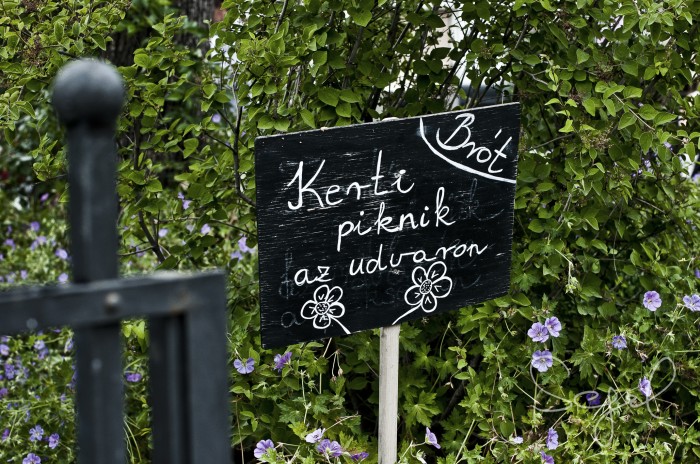 Brót
Kerti
piknik
az udvaron